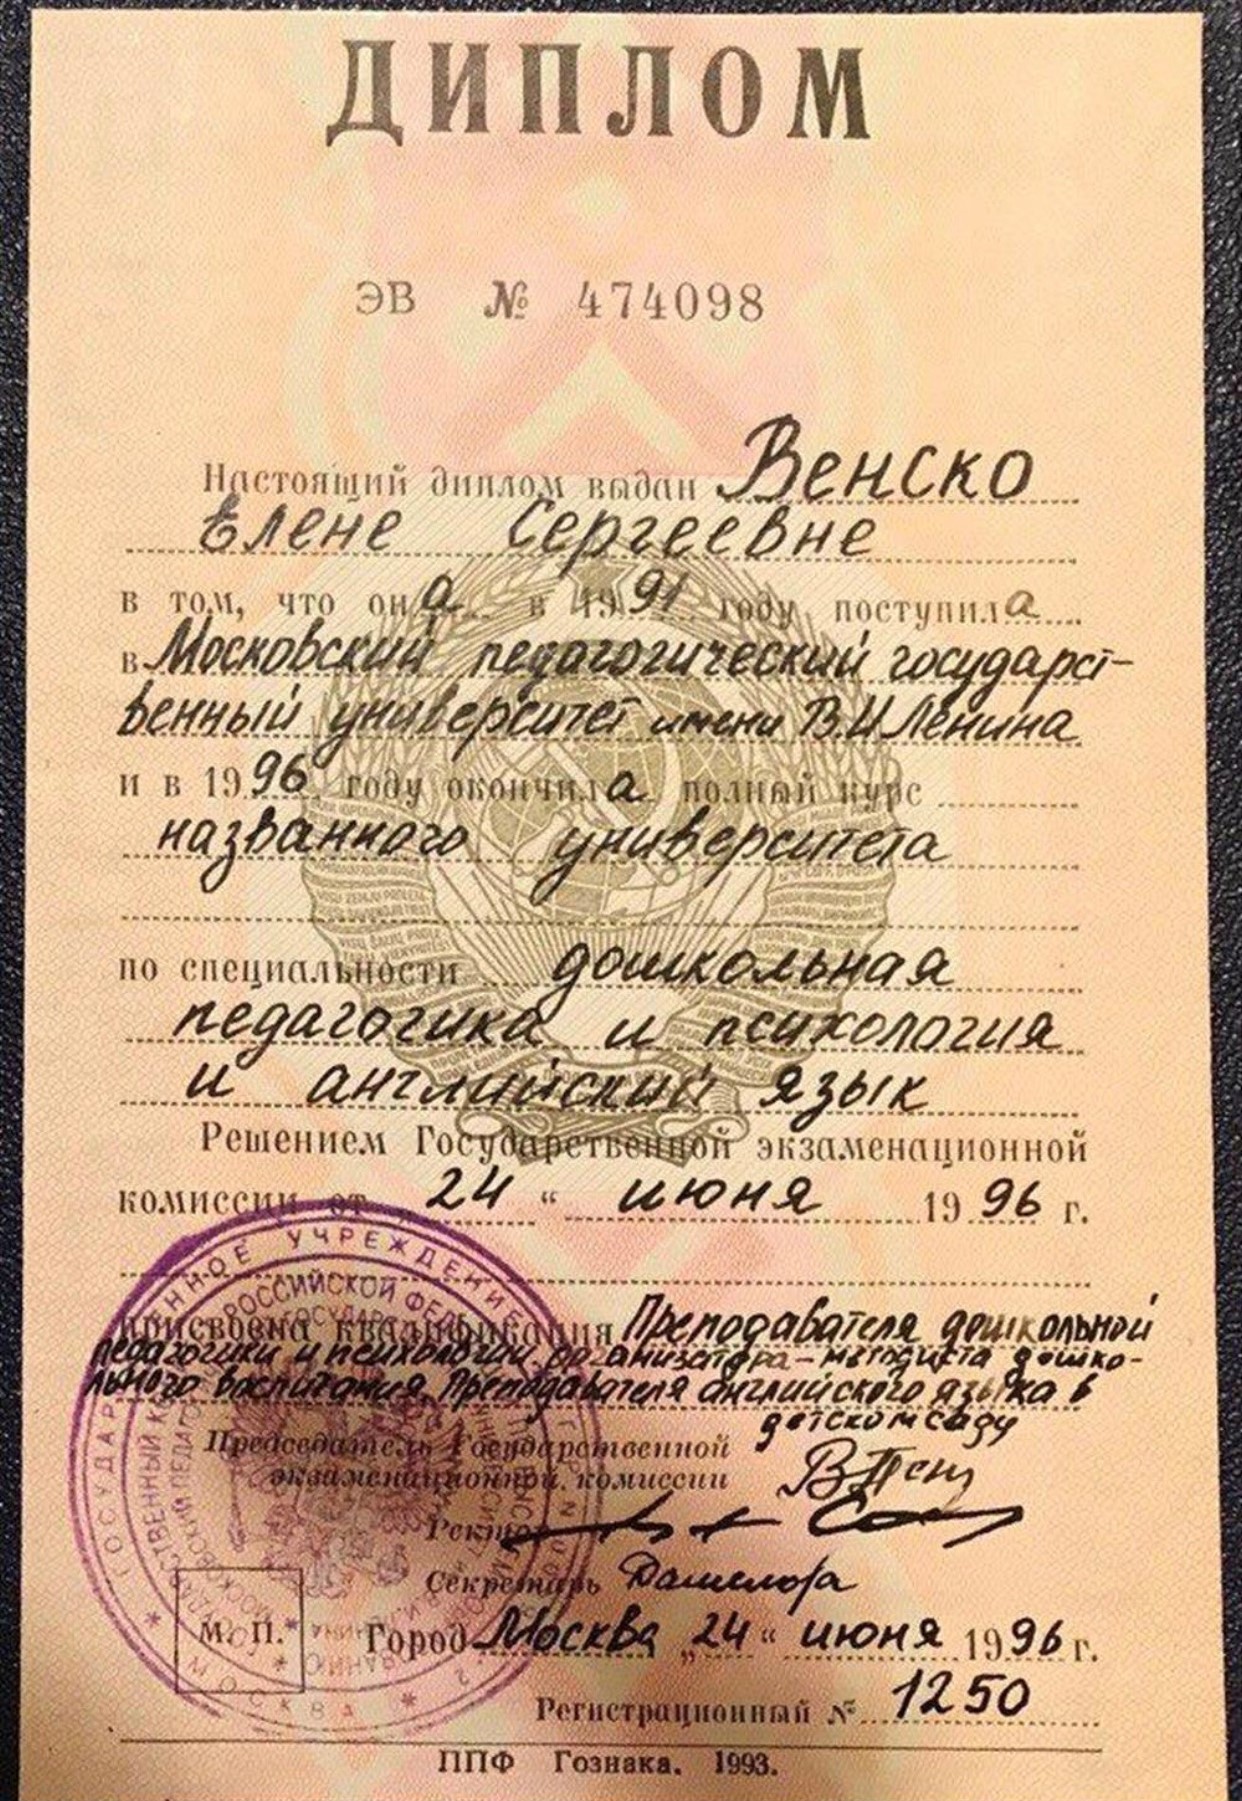 ДИПЛОМ
ЭВ № 474098
Настоящий диплом выдан Венско
Елене Сергеевне
в том, что она в 1991 году поступила
в Московский педагогический государст-
венный университет имени В.И Ленина
и в 1996 году окончила полный курс
названного университета
по специальности дошкольная
педагогика и психология
и английский язык
Решением Государственной экзаменационной
комиссии от „ 24 “ июня 1996 г.
присвоена квалификация Преподавателя дошкольной
педагогики и психологии. организатора-методиста дошко-
льного воспитания. Преподавателя английского языка в
детском саду
Председатель Государственной
экзаменационной комиссии
Ректор
Секретарь Данилова
М. П. Город Москва „24“ июня 1996 г.
Регистрационный № 1250
ППФ Гознака. 1993.
УЧРЕЖДЕНИЕ
РОССИЙСКОЙ
МОСКВА